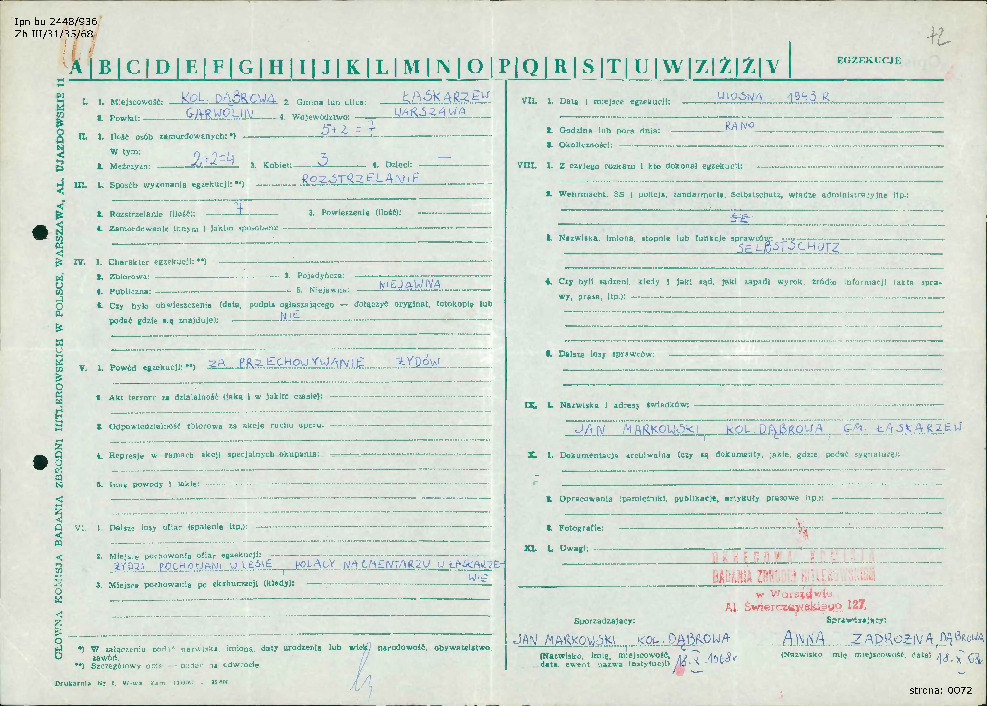 Ipn bu 2448/936
Zh III/31/35/68
72
A B C D E F G H I J K L M N O P Q R S T U W Z Ż Ź V
EGZEKUCJE
GŁÓWNA KOMISJA BADANIA ZBRODNI HITLEROWSKICH W POLSCE, WARSZAWA, AL. UJAZDOWSKIE 11
I. 1. Miejscowość: KOL. DĄBROWA 2. Gmina lub ulica: ŁASKARZEW
3. Powiat: GARWOLIN 4. Województwo: WARSZAWA
II. 1. Ilość osób zamordowanych:*) 5+2 = 7
W tym:
2. Mężczyzn: 2+2=4 3. Kobiet: 3 4. Dzieci: —
III. 1. Sposób wykonania egzekucji:**) ROZSTRZELANIE
2. Rozstrzelanie (ilość): 7 3. Powieszenie (ilość):
4. Zamordowanie innym i jakim sposobem:
IV. 1. Charakter egzekucji:**)
2. Zbiorowa: 3. Pojedyńcza:
4. Publiczna: 5. Niejawna: NIEJAWNA
6. Czy było obwieszczenie (data, podpis ogłaszającego — dołączyć oryginał, fotokopię lub
podać gdzie się znajduje): NIE
V. 1. Powód egzekucji:**) ZA PRZECHOWYWANIE ŻYDÓW
2. Akt terroru za działalność (jaką i w jakim czasie):
3. Odpowiedzialność zbiorowa za akcję ruchu oporu.
4. Represje w ramach akcji specjalnych okupanta:
5. Inne powody i jakie:
VI. 1. Dalsze losy ofiar (spalenie itp.):
2. Miejsce pochowania ofiar egzekucji:
ŻYDZI POCHOWANI W LESIE, POLACY NA CMENTARZU W ŁASKARZE-
WIE
3. Miejsce pochowania po ekshumacji (kiedy):
*) W załączeniu podać nazwiska, imiona, daty urodzenia lub wiek, narodowość, obywatelstwo,
zawód.
**) Szczegółowy opis — podać na odwrocie
VII. 1. Data i miejsce egzekucji: WIOSNA 1943 R
2. Godzina lub pora dnia: RANO
3. Okoliczności:
VIII. 1. Z czyjego rozkazu i kto dokonał egzekucji:
2. Wehrmacht, SS i policja, żandarmeria, Selbstschutz, władze administracyjne itp.:
3. Nazwiska, imiona, stopnie lub funkcje sprawców:
SELBSTSCHUTZ
4. Czy byli sądzeni, kiedy i jaki sąd, jaki zapadł wyrok, źródło informacji (akta spra-
wy, prasa, itp.):
5. Dalsze losy sprawców:
IX. 1. Nazwiska i adresy świadków:
JAN MARKOWSKI, KOL. DĄBROWA, GM. ŁASKARZEW
X. 1. Dokumentacja archiwalna (czy są dokumenty, jakie, gdzie, podać sygnaturę):
2. Opracowania (pamiętniki, publikacje, artykuły prasowe itp.):
3. Fotografie:
XI. 1. Uwagi:
OKRĘGOWA KOMISJA
BADANIA ZBRODNI HITLEROWSKICH
w Warszawie
Al. Świerczewskiego 127,
Sporządzający:
JAN MARKOWSKI KOL. DĄBROWA
(Nazwisko, imię, miejscowość,
data, ewent. nazwa instytucji) 18. X 1968r
Sprawdzający:
ANNA ZADROŻNA, DĄBROWA
(Nazwisko, imię, miejscowość, data) 18. X 68
strona: 0072